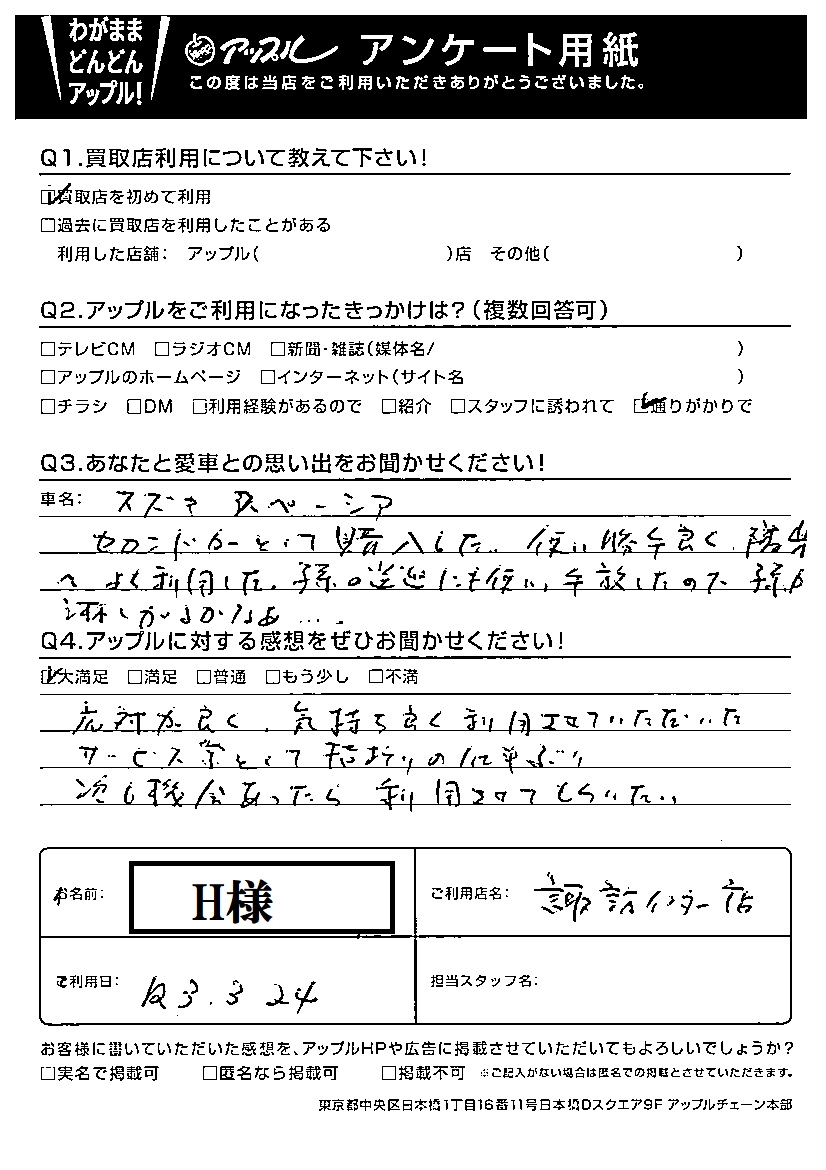 わがまま
どんどん
アップル!
アップル アンケート用紙
この度は当店をご利用いただきありがとうございました。
Q1.買取店利用について教えて下さい!
☑買取店を初めて利用
□過去に買取店を利用したことがある
利用した店舗: アップル( )店 その他( )
Q2.アップルをご利用になったきっかけは?(複数回答可)
□テレビCM □ラジオCM □新聞・雑誌(媒体名/ )
□アップルのホームページ □インターネット(サイト名 )
□チラシ □DM □利用経験があるので □紹介 □スタッフに誘われて ☑通りがかりで
Q3.あなたと愛車との思い出をお聞かせください!
車名: スズキ スペーシア
セカンドカーとして購入した。使い勝手良く、隣
へよく利用した。孫の送迎にも使い、手放したので孫が
淋しがるかなあ….
Q4.アップルに対する感想をぜひお聞かせください!
☑大満足 □満足 □普通 □もう少し □不満
応対が良く、気持ち良く利用させていただいた
サービス業として の仕事ぶり
次も機会あったら利用させてもらいたい
お名前: H様
ご利用店名: 諏訪インター店
ご利用日: R3.3 24
担当スタッフ名:
お客様に書いていただいた感想を、アップルHPや広告に掲載させていただいてもよろしいでしょうか?
□実名で掲載可 □匿名なら掲載可 □掲載不可 ※ご記入がない場合は匿名での掲載とさせていただきます。
東京都中央区日本橋1丁目16番11号日本橋Dスクエア9F アップルチェーン本部